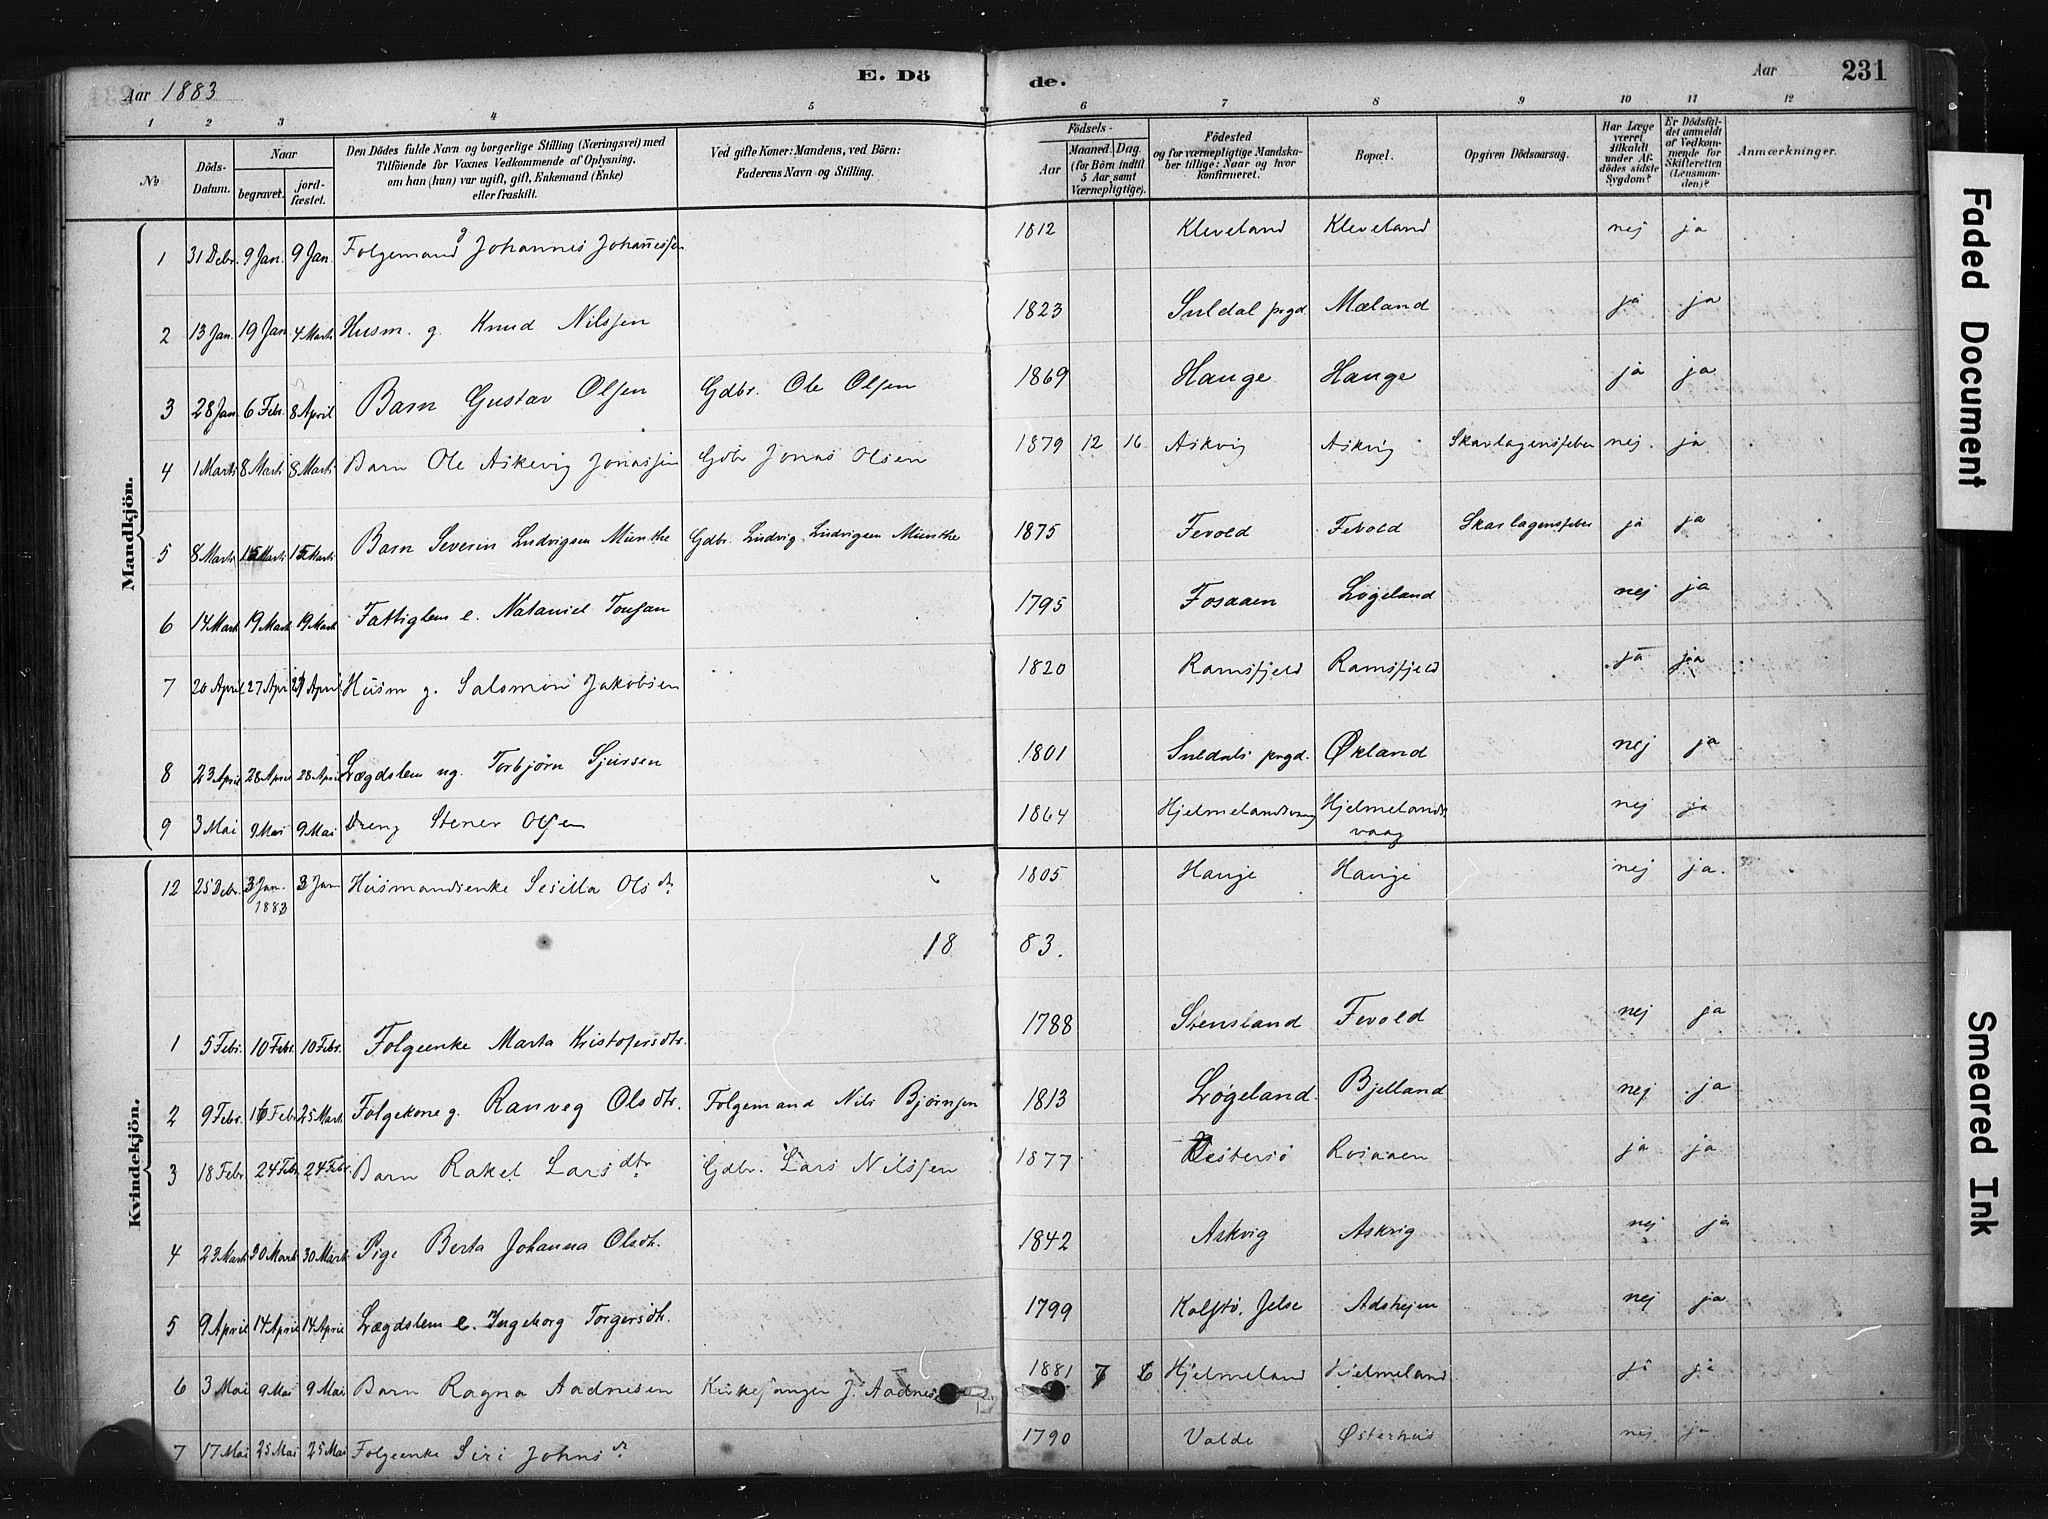 Aar 1883
E. Dö
de.
Aar
231
1 2 3 4 5 6 7 8 9 10 11 12
No
Döds-Datum.
Naar
begravet.
jord-fæstet.
Den Dödes fulde Navn og borgerlige Stilling (Næringsvei) med
Tilföiende for Voxnes Vedkommende af Oplysning,
om han (hun) var ugift, gift, Enkemand (Enke)
eller fraskilt.
Ved gifte Koner: Mandens, ved Börn:
Faderens Navn og Stilling.
Födsels-
Aar
Maaned. Dag.
(for Börn indtil
5 Aar samt
Værnepligtige).
Födested
og for værnepligtige Mandska-
ber tillige: Naar og hvor
konfirmeret.
Bopæl.
Opgiven Dödsaarsag.
Har Læge
været
tilkaldt
under Af-
dödes sidste
Sygdom?
Er Dödsfal-
det anmeldt
af Vedkom-
mende for
Skifteretten
(Lensman-
den)?
Anmærkninger.
Mandkjön.
1 31 Debr. 9 Jan. 9 Jan. Folgemand g Johannes Johannessen 1812 Kleveland Kleveland nej ja
2 13 Jan. 19 Jan 4 Marts Husm. g. Knud Nilssen 1823 Suldal prgd. Mæland ja ja
3 28 Jan. 6 Febr. 8 April Barn Gustav Olsen Gdbr. Ole Olsen 1869 Hauge Hauge ja ja
4 1 Marts 8 Marts 8 Marts Barn Ole Askevig Jonassen Gdbr Jonas Olsen 1879 12 16 Askvig Askvig Skarlagensfeber nej. ja
5 8 Marts 15 Marts 15 Marts Barn Severin Ludvigsen Munthe Gdbr. Ludvig Ludvigsen Munthe 1875 Fevold Fevold Skarlagensfeber ja ja
6 14 Mart 19 Mart 19 Mart Fattiglem e. Nataniel 1795 Fosaaen Løgeland nej ja
7 20 April 27 Apri 27 April Husm g. Salomon Jakobsen 1820 Ramsfjeld Ramsfjeld ja ja
8 23 April 28 April 28 April Lægdslem ug. Torbjørn Sjursen 1801 Suldals prgd. Økland nej ja
9 3 Mai 9 Mai 9 Mai Dreng Stener Olsen 1864 Hjelmelandsvaag Hjelmelands
vaag nej ja
Kvindekjön.
12 25 Debr. 3 Jan. 3 Jan Husmandsenke Sesilla Olsdr. 1805 Hauge Hauge nej ja.
1883
18 83.
1 5 Febr. 10 Febr. 10 Febr. Folgeenke Marta Kristofersdtr. 1788 Stensland Fevold nej ja
2 9 Febr. 16 Febr 25 Mart Folgekone g. Ranveg Olsdtr. Folgemand Nils Bjørnsen 1813 Løgeland. Bjelland nej ja
3 18 Febr 24 Febr 24 Febr. Barn Rakel Larsdtr. Gdbr. Lars Nilssen 1877 Vestersø ja ja
4 23 Mart 30 Mart 30 Mart Pige Berta Johanna Olsdtr. 1842 Askvig Askvig nej ja
5 9 April 14 April 14 April Lægdslem e. Ingeborg Torgersdtr. 1799 Kolstø, Jelse nej ja
6 3 Mai 9 Mai 9 Mai Barn Ragna Aadnesen Kirkesanger J. Aadnes 1881 7 6 Hjelmeland Hjelmeland ja ja
7 17 Mai 25 Mai 25 Mai Folgeenke Siri Johnsdr. 1790 Valde Østerhus nej ja
Faded Document
Smeared Ink